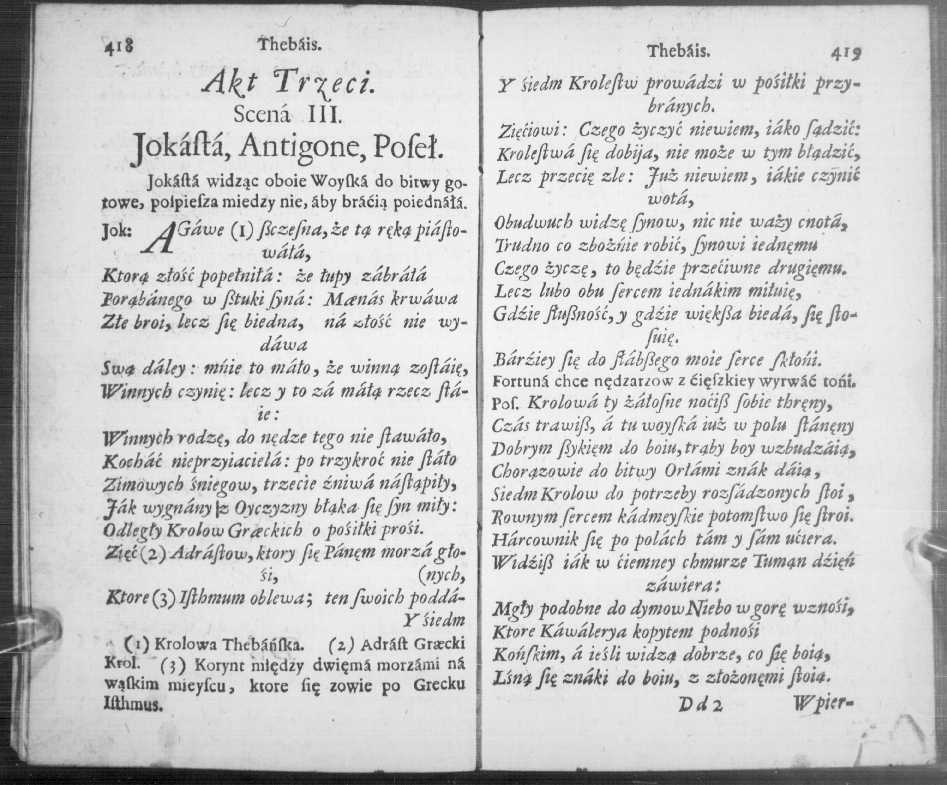 418 Thebáis.
Akt Trzeci.
Scená III.
Jokáſtá, Antigone, Poſeł.
Jokáſtá widząc oboie Woyſká do bitwy go-
towe, poſpieſza miedzy nie, áby bráćią poiednáłá.
Jok: AGáwe (1) ſzczeſna, że tą ręką piáſto-
wáłá,
Ktorą złość popełniłá: że łupy zábráłá
Porąbánego w ſztuki ſyná: Mænás krwáwa
Złe broi, lecz ſię biedna, ná złość nie wy-
dáwa
Swą dáley: mńie to máło, że winną zoſtáię,
Winnych czynię: lecz y to zá máłą rzecz ſtá-
ie:
Winnych rodzę, do nędze tego nie ſtawáło,
Kocháć nieprzyiacielá: po trzykroć nie ſtáło
Zimowych śniegow, trzecie źniwá náſtąpiły,
Ják wygnány z Oyczyzny błąka ſię ſyn miły:
Odległy Krolow Græckich o pośiłki prośi.
Zięć (2) Adráſtow, ktory ſię Pánęm morzá gło-
śi, (nych,
Ktore (3) Iſthmum oblewa; ten ſwoich poddá-
Y śiedm
(1) Krolowa Thebáńſka. (2) Adráſt Græcki
Krol. (3) Korynt między dwięmá morzámi ná
wąſkim mieyſcu, ktore ſię zowie po Grecku
Iſthmus.
Thebáis. 419
Y śiedm Kroleſtw prowádzi w pośiłki przy-
bránych.
Zięćiowi: Czego życzyć niewiem, iáko ſądzić:
Kroleſtwá ſię dobija, nie może w tym błądzić,
Lecz przecię zle: Już niewiem, iákie czynić
wotá,
Obudwuch widzę ſynow, nic nie waży cnotá,
Trudno co zbożńie robić, ſynowi iednęmu
Czego życzę, to będzie przećiwne drugięmu.
Lecz lubo obu ſercem iednákim miłuię,
Gdźie ſłuſzność, y gdźie więkſza biedá, ſię ſto-
ſuię.
Bárźiey ſię do ſłábſzego moie ſerce ſkłońi.
Fortuná chce nędzarzow z ćięſzkiey wyrwáć tońi.
Poſ. Krolowá ty żáłoſne noćiſz ſobie thręny,
Czás trawiſz, á tu woyſká iuż w polu ſtánęny
Dobrym ſzykięm do boiu, trąby boy wzbudzáią,
Chorązowie do bitwy Orłámi znák dáią,
Siedm Krolow do potrzeby rozſádzonych ſtoi,
Rownym ſercem kádmeyſkie potomſtwo ſię ſtroi.
Hárcownik ſię po polách tám y ſám uciera.
Widźiſz iák w ćiemney chmurze Tumąn dźięń
záwiera:
Mgły podobne do dymow Niebo w gorę wznośi,
Ktore Káwálerya kopytem podnośi
Końſkim, á ieśli widzą dobrze, co ſię boią,
Lśną ſię znáki do boiu, z złożonęmi ſtoią.
Dd2 Wpier-